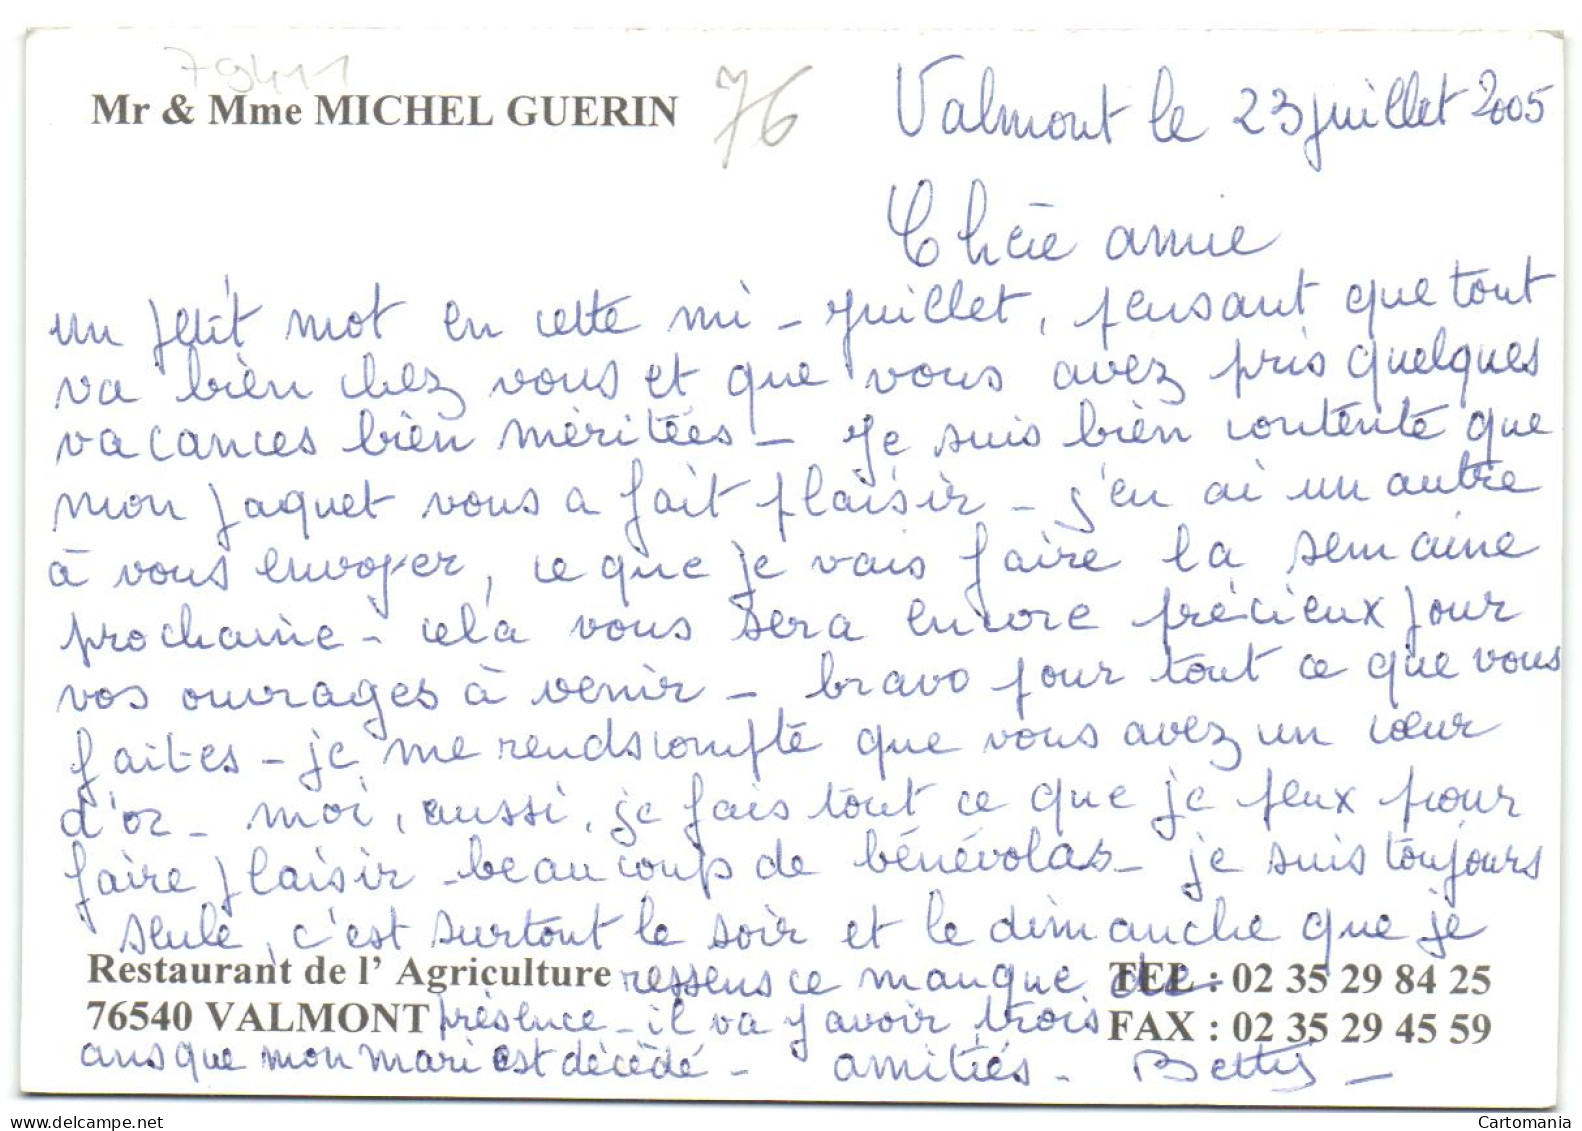 79411
Mr & Mme MICHEL GUERIN
76
Valmont le 23 juillet 2005
Chère amie
un petit mot en cette mi-juillet, pensant que tout
va bien chez vous et que vous avez pris quelques
vacances bien méritées - Je suis bien contente que
mon paquet vous a fait plaisir - j'en ai un autre
à vous envoyer, ce que je vais faire la semaine
prochaine - celà vous sera encore précieux pour
vos ouvrages à venir - bravo pour tout ce que vous
faites - je me rends compte que vous avez un cœur
d'or - moi, aussi, je fais tout ce que je peux pour
faire plaisir - beaucoup de bénévolat - je suis toujours
seule, c'est surtout le soir et le dimanche que je
Restaurant de l' Agriculture ressens ce manque de TEL : 02 35 29 84 25
76540 VALMONT présence - il va y avoir trois FAX : 02 35 29 45 59
ans que mon mari est décédé - amitiés - Betty -
Cartomania